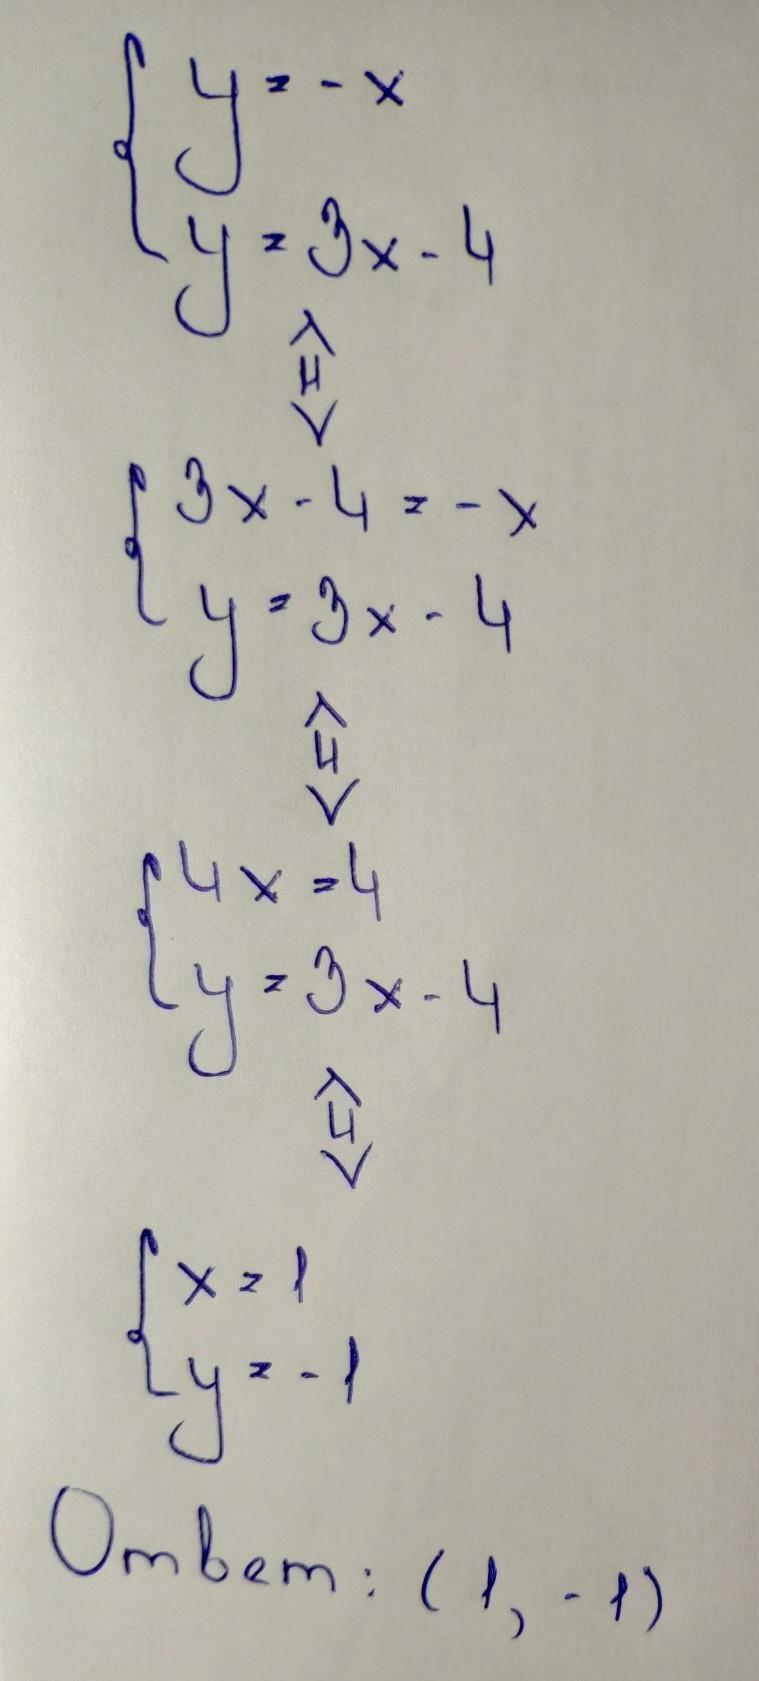 { y = - x
y = 3x - 4
⇕
{ 3x - 4 = - x
y = 3x - 4
⇕
{ 4x = 4
y = 3x - 4
⇕
{ x = 1
y = - 1
Ответ: (1, -1)